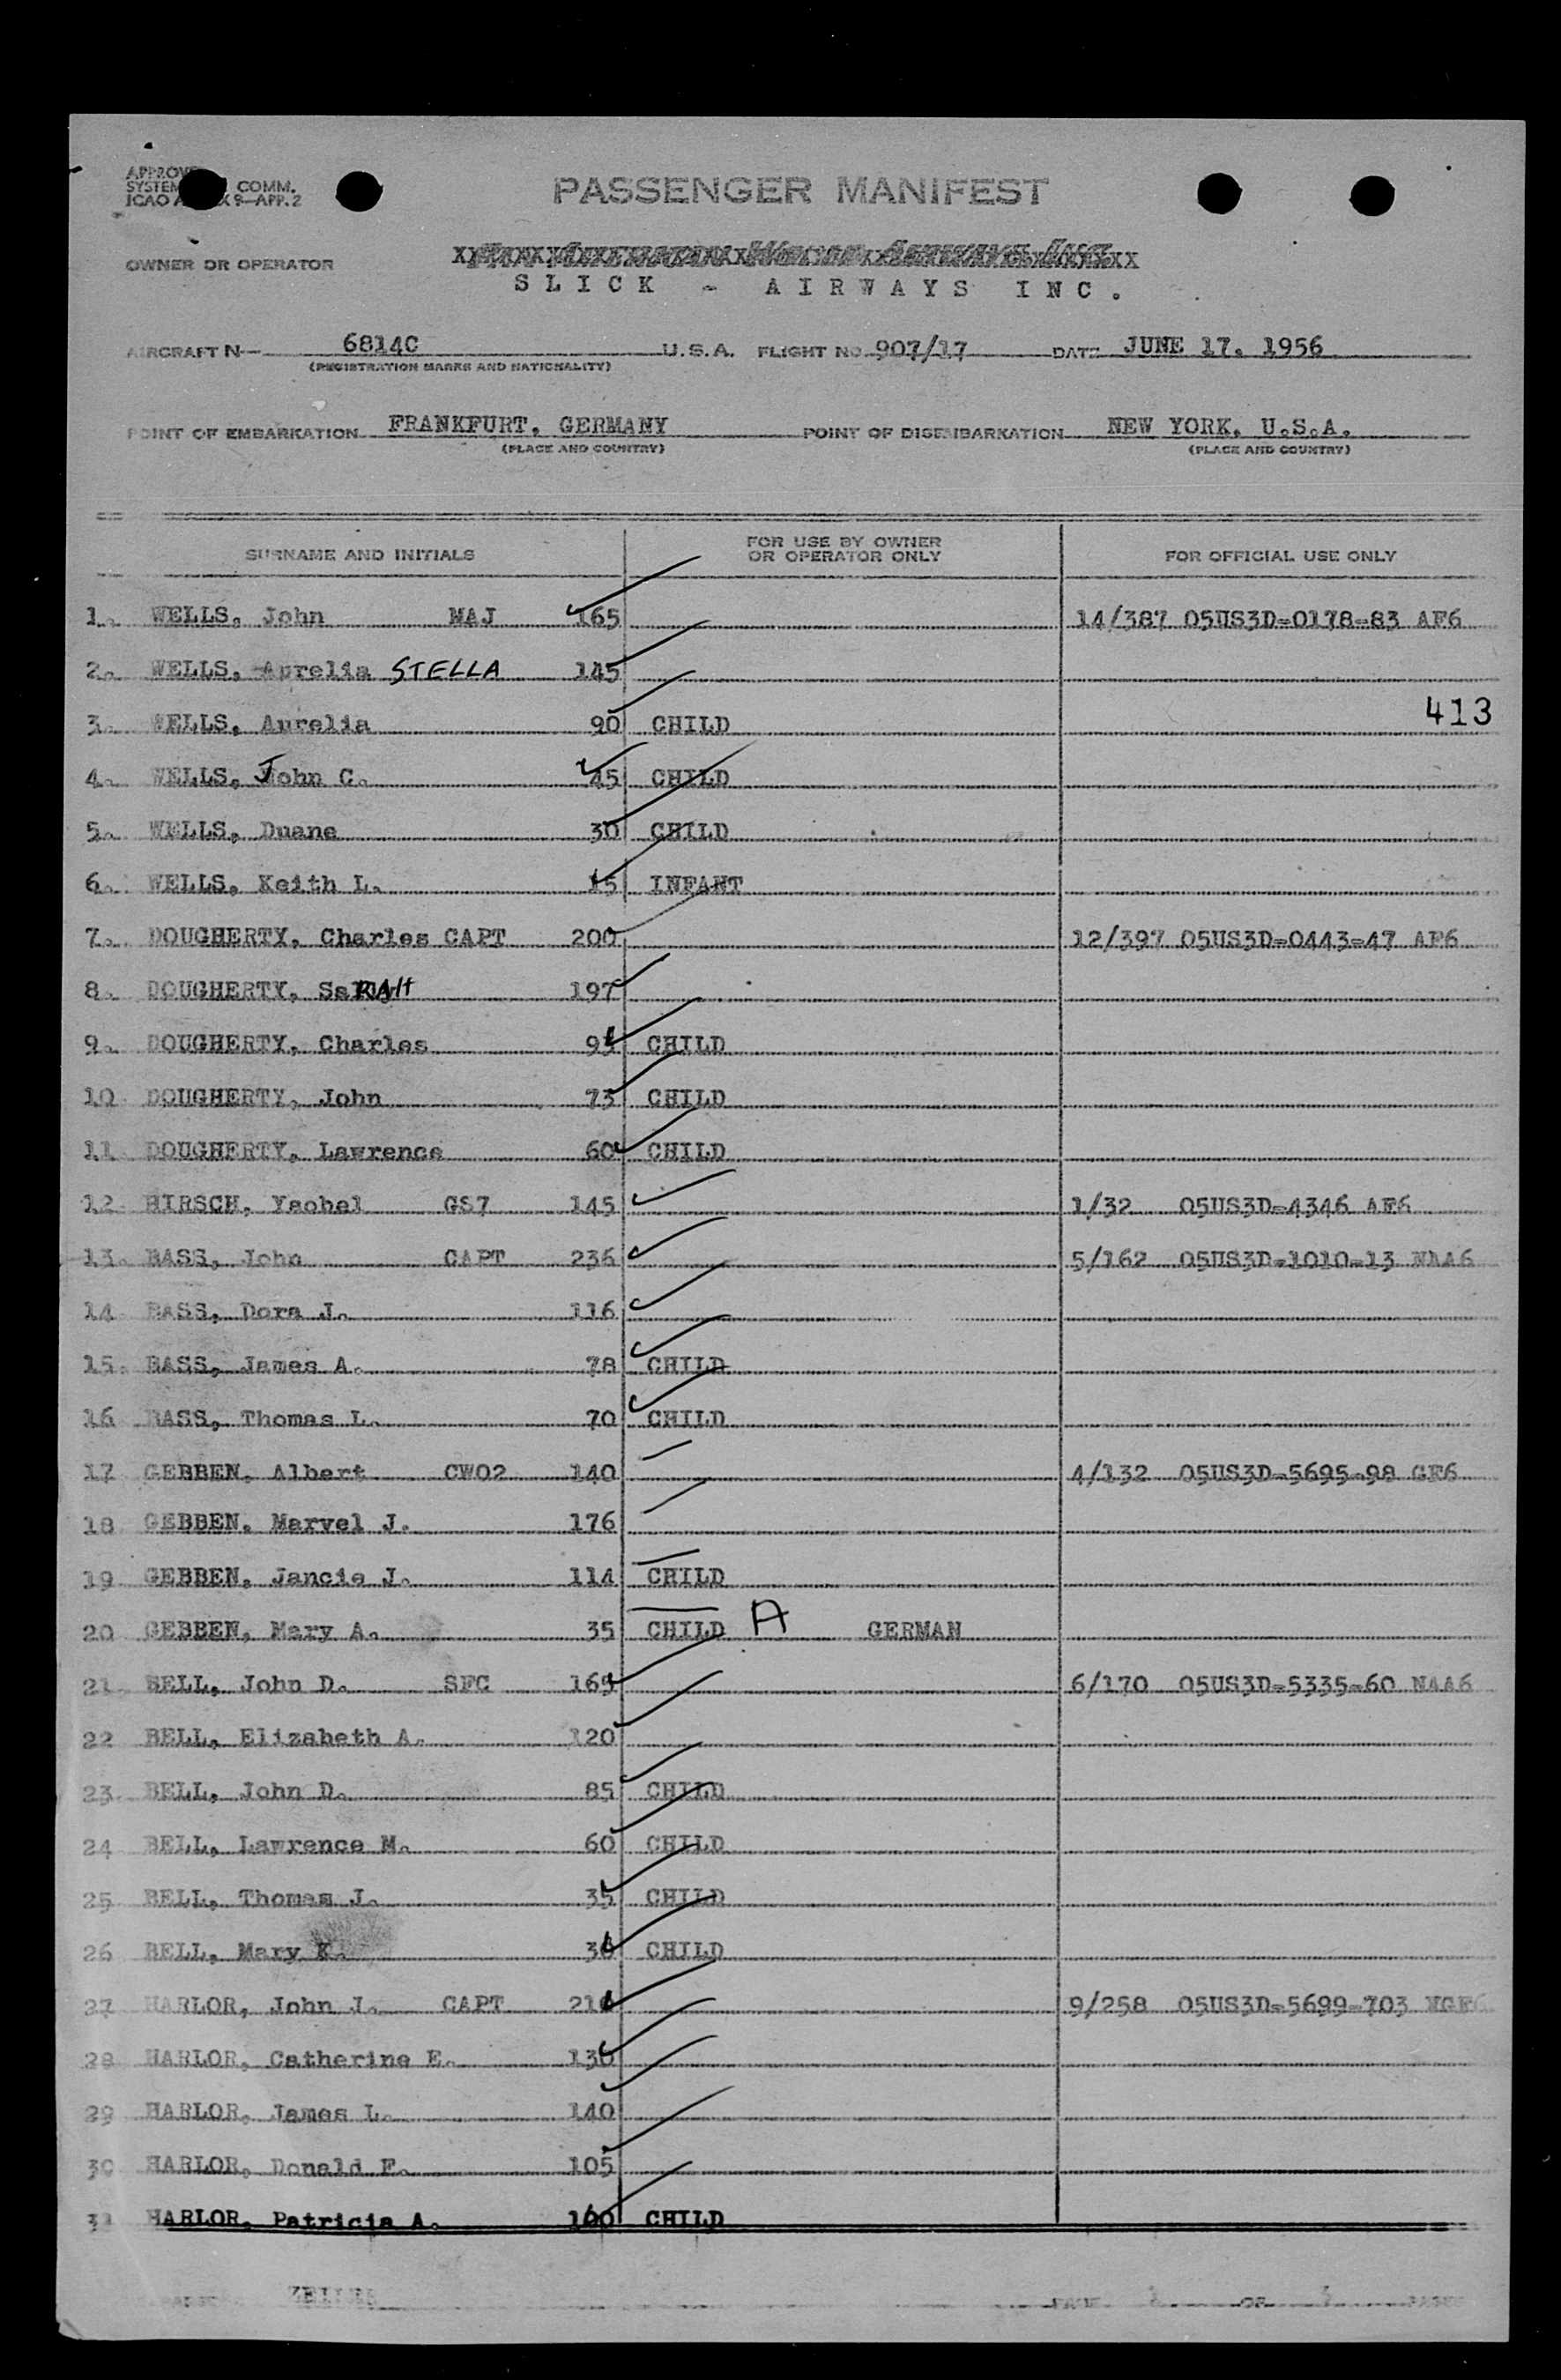 PASSENGER MANIFEST
COMM.
9—APP. 2
OWNER OR OPERATOR
SLICK - AIRWAYS INC.
AIRCRAFT N— 6814C U.S.A. FLIGHT NO. 907/17 DATE JUNE 17. 1956
(REGISTRATION MARKS AND NATIONALITY)
POINT OF EMBARKATION FRANKFURT, GERMANY POINT OF DISEMBARKATION NEW YORK, U.S.A.
(PLACE AND COUNTRY) (PLACE AND COUNTRY)
SURNAME AND INITIALS FOR USE BY OWNER OR OPERATOR ONLY FOR OFFICIAL USE ONLY
1. WELLS, John MAJ 165 14/387 05US3D-0178-83 AF6
2. WELLS, Aurelia STELLA 145
3. WELLS, Aurelia 90 CHILD 413
4. WELLS, John C. 45 CHILD
5. WELLS, Duane 30 CHILD
6. WELLS, Keith L. 15 INFANT
7. DOUGHERTY, Charles CAPT 200 12/397 05US3D-0443-47 AF6
8. DOUGHERTY, SaRAH 197
9. DOUGHERTY, Charles CHILD
10 DOUGHERTY, John 73 CHILD
11 DOUGHERTY, Lawrence 60 CHILD
12 HIRSCH, Ysobel GS7 145 1/32 05US3D-4346 AF6
13. BASS, John CAPT 236 5/162 05US3D-1010-13 NAA6
14 BASS, Dora J. 116
15. BASS, James A. 78 CHILD
16 BASS, Thomas L. 70 CHILD
17 GEBBEN, Albert CWO2 140 4/132 05US3D-5695-98 GF6
18 GEBBEN, Marvel J. 176
19 GEBBEN, Jancie J. 114 CHILD
20 GEBBEN, Mary A. 35 CHILD A GERMAN
21. BELL, John D. SFC 165 6/170 05US3D-5335-60 NAA6
22 BELL, Elizabeth A. 120
23. BELL, John D. 85 CHILD
24 BELL, Lawrence M. 60 CHILD
25 BELL, Thomas J. 35 CHILD
26 BELL, Mary K. CHILD
27 HARLOR, John J. CAPT 9/258 05US3D-5699-703
28 HARLOR, Catherine E. 130
29 HARLOR, James L. 140
30 HARLOR, Donald F. 105
31 HARLOR, Patricia A. 100 CHILD
PAGE OF PAGES